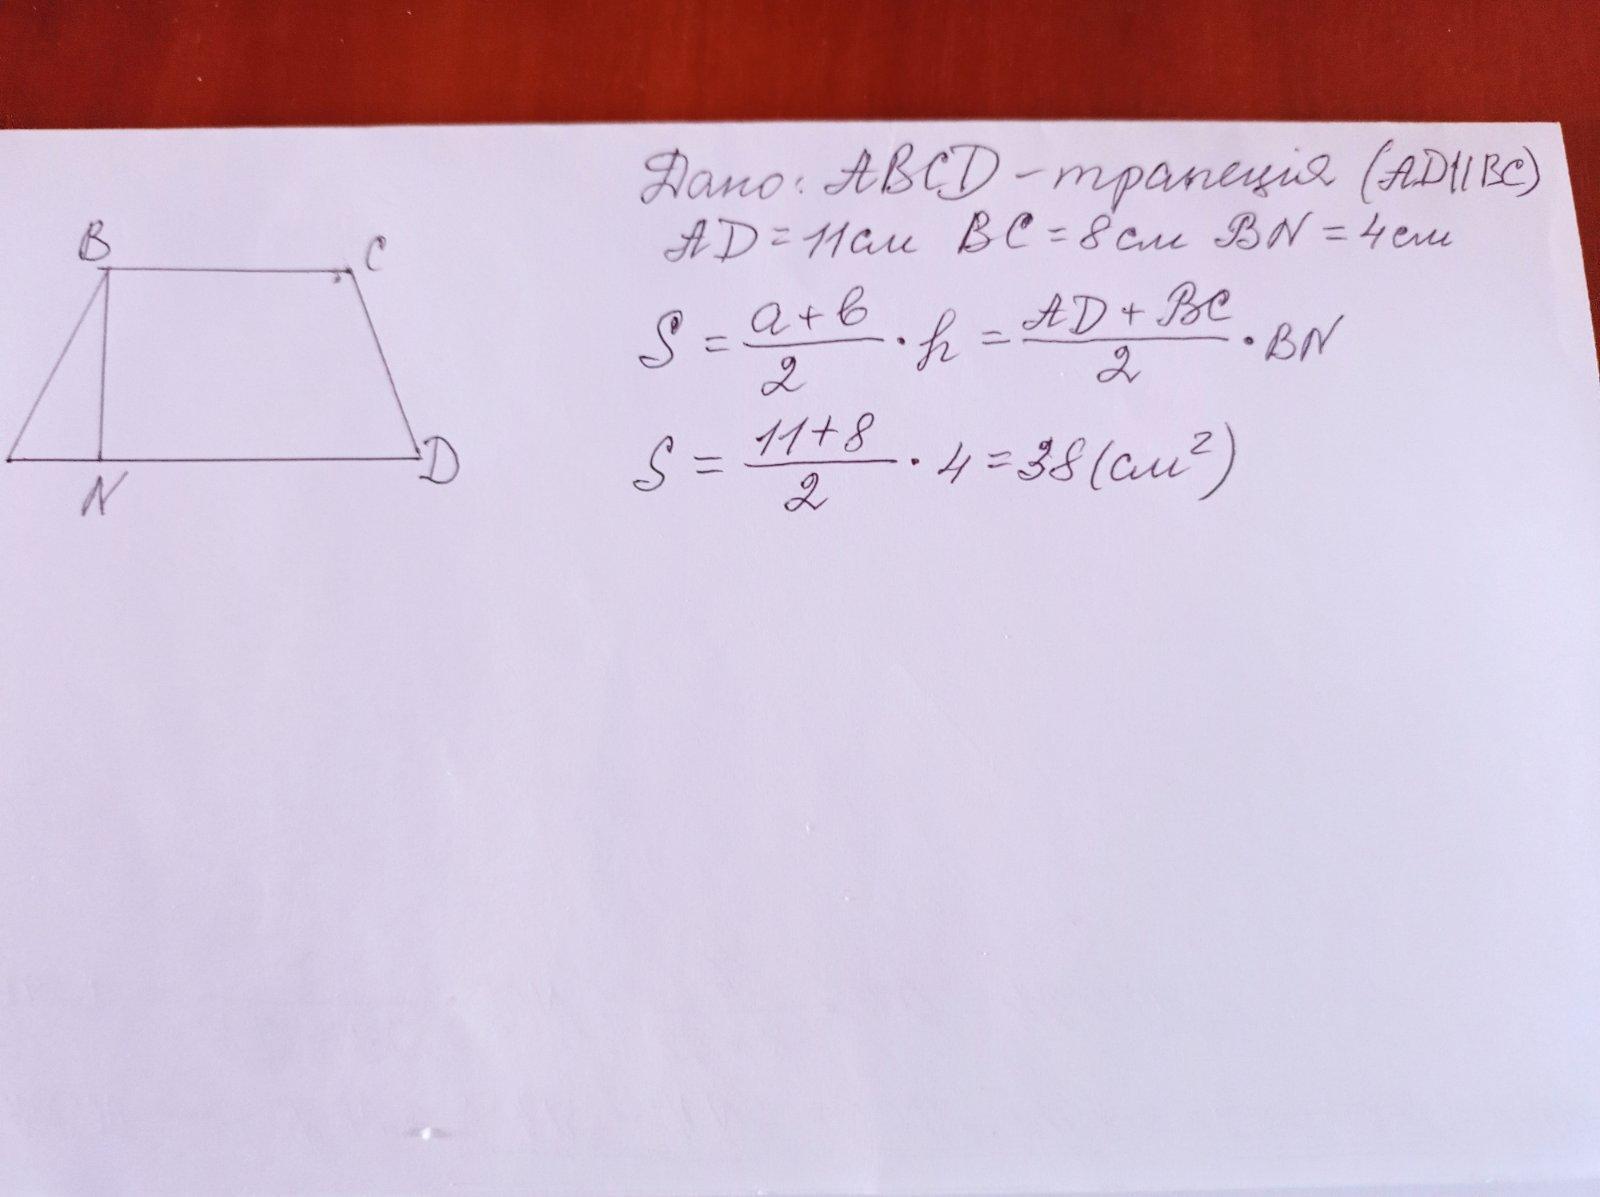 Дано: ABCD - трапеція (AD||BC)
AD = 11см BC = 8см BN = 4см
B
C
N
D
S = a+b/2 · h = AD + BC/2 · BN
S = 11+8/2 · 4 = 38 (см²)